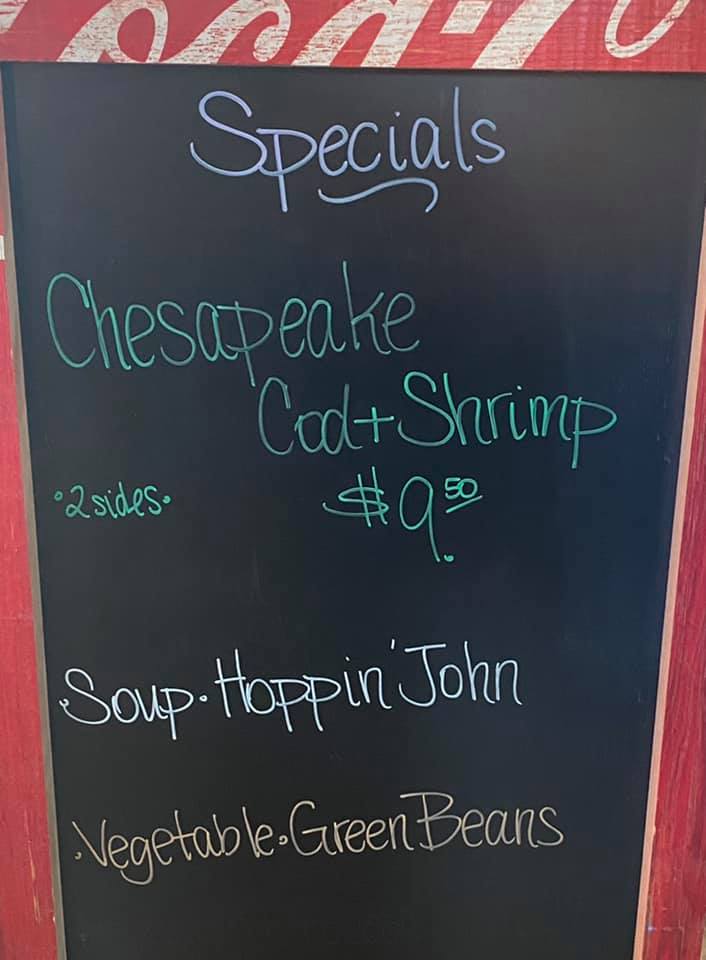 Coca-Co
Specials
Chesapeake
Cod + Shrimp
• 2 sides • $9.50
• Soup • Hoppin' John
• Vegetable • Green Beans